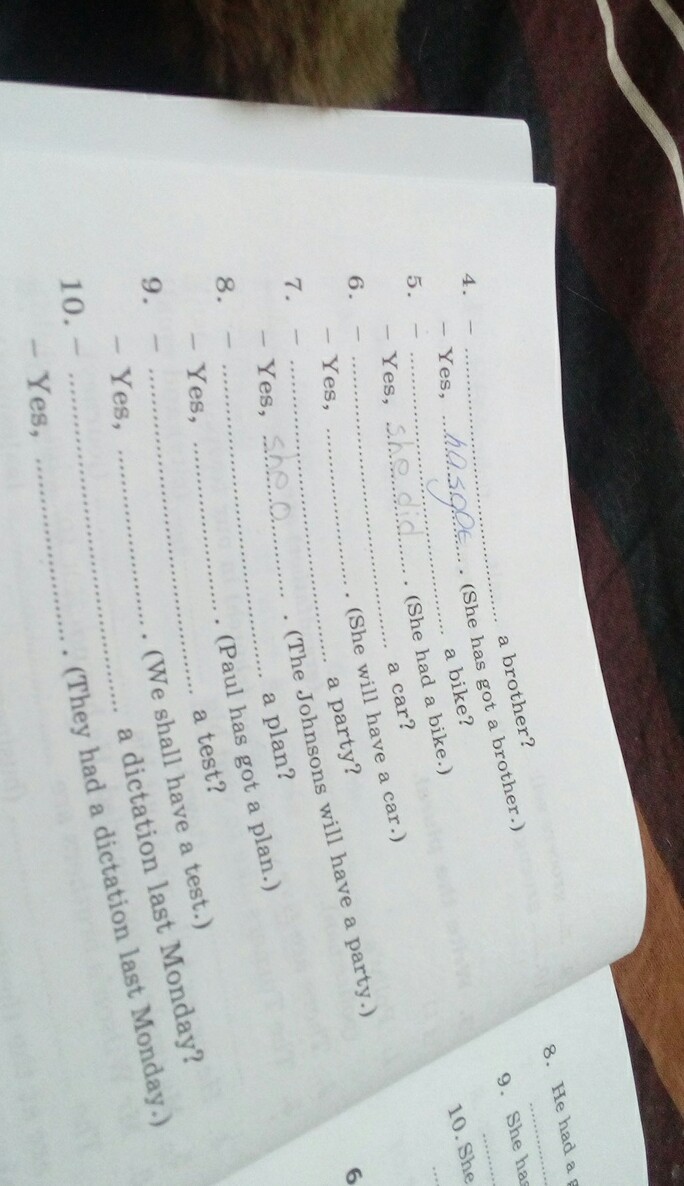 4. – ........................ a brother?
– Yes, hasgot . (She has got a brother.)
5. – ........................ a bike?
– Yes, she did . (She had a bike.)
6. – ........................ a car?
– Yes, ................ . (She will have a car.)
7. – ........................ a party?
– Yes, she ................ . (The Johnsons will have a party.)
8. – ........................ a plan?
– Yes, ................ . (Paul has got a plan.)
9. – ........................ a test?
– Yes, ................ . (We shall have a test.)
10. – ........................ a dictation last Monday?
– Yes, ................ . (They had a dictation last Monday.)
8. He had a
9. She has
10. She
6